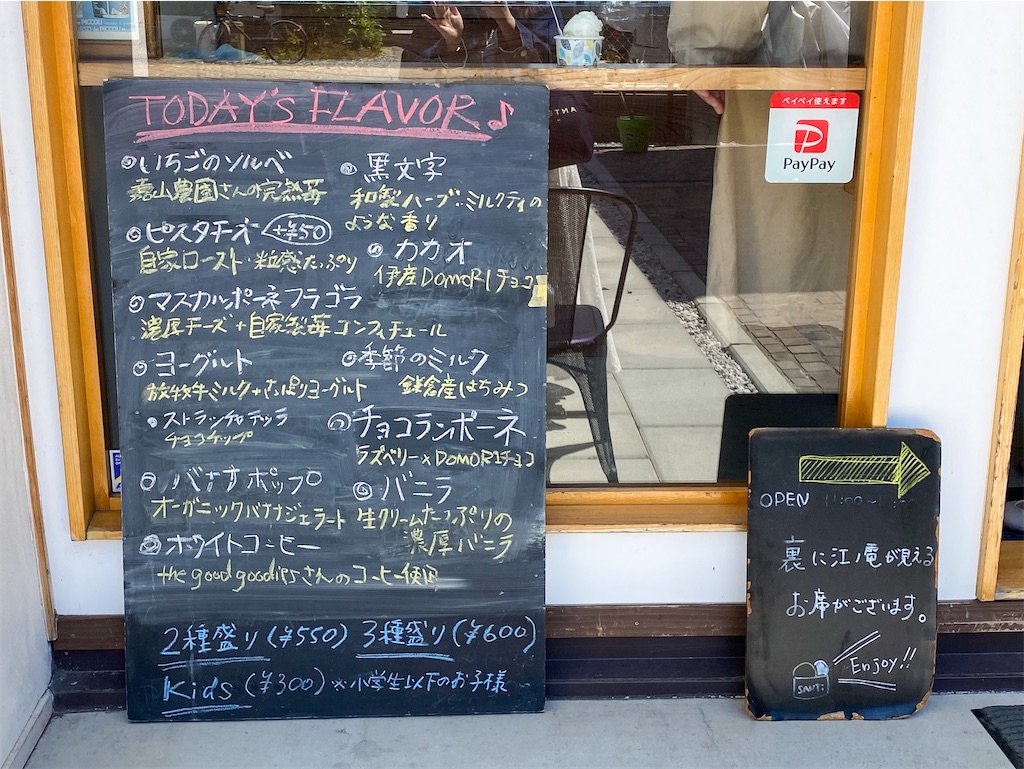 TODAY's FLAVOR♪
いちごのソルベ
嘉山農園さんの完熟苺
ピスタチオ +¥50
自家ロースト・粒感たっぷり
マスカルポーネ フラゴラ
濃厚チーズ+自家製苺コンフィチュール
ヨーグルト
放牧牛ミルク+さっぱりヨーグルト
ストラッチャテッラ
チョコチップ
バナナポップ
オーガニックバナナジェラート
ホワイトコーヒー
the good goodiesさんのコーヒー使用
黒文字
和製ハーブ:ミルクティの
ような香り
カカオ
伊産DOMORIチョコ
季節のミルク
鎌倉産はちみつ
チョコランポーネ
ラズベリー×DOMORIチョコ
バニラ
生クリームたっぷりの
濃厚バニラ
2種盛り(¥550) 3種盛り(¥600)
Kids (¥300) ※小学生以下のお子様
ペイペイ使えます
PayPay
OPEN
裏に江ノ電が見える
お席がございます。
Enjoy!!
SANTi